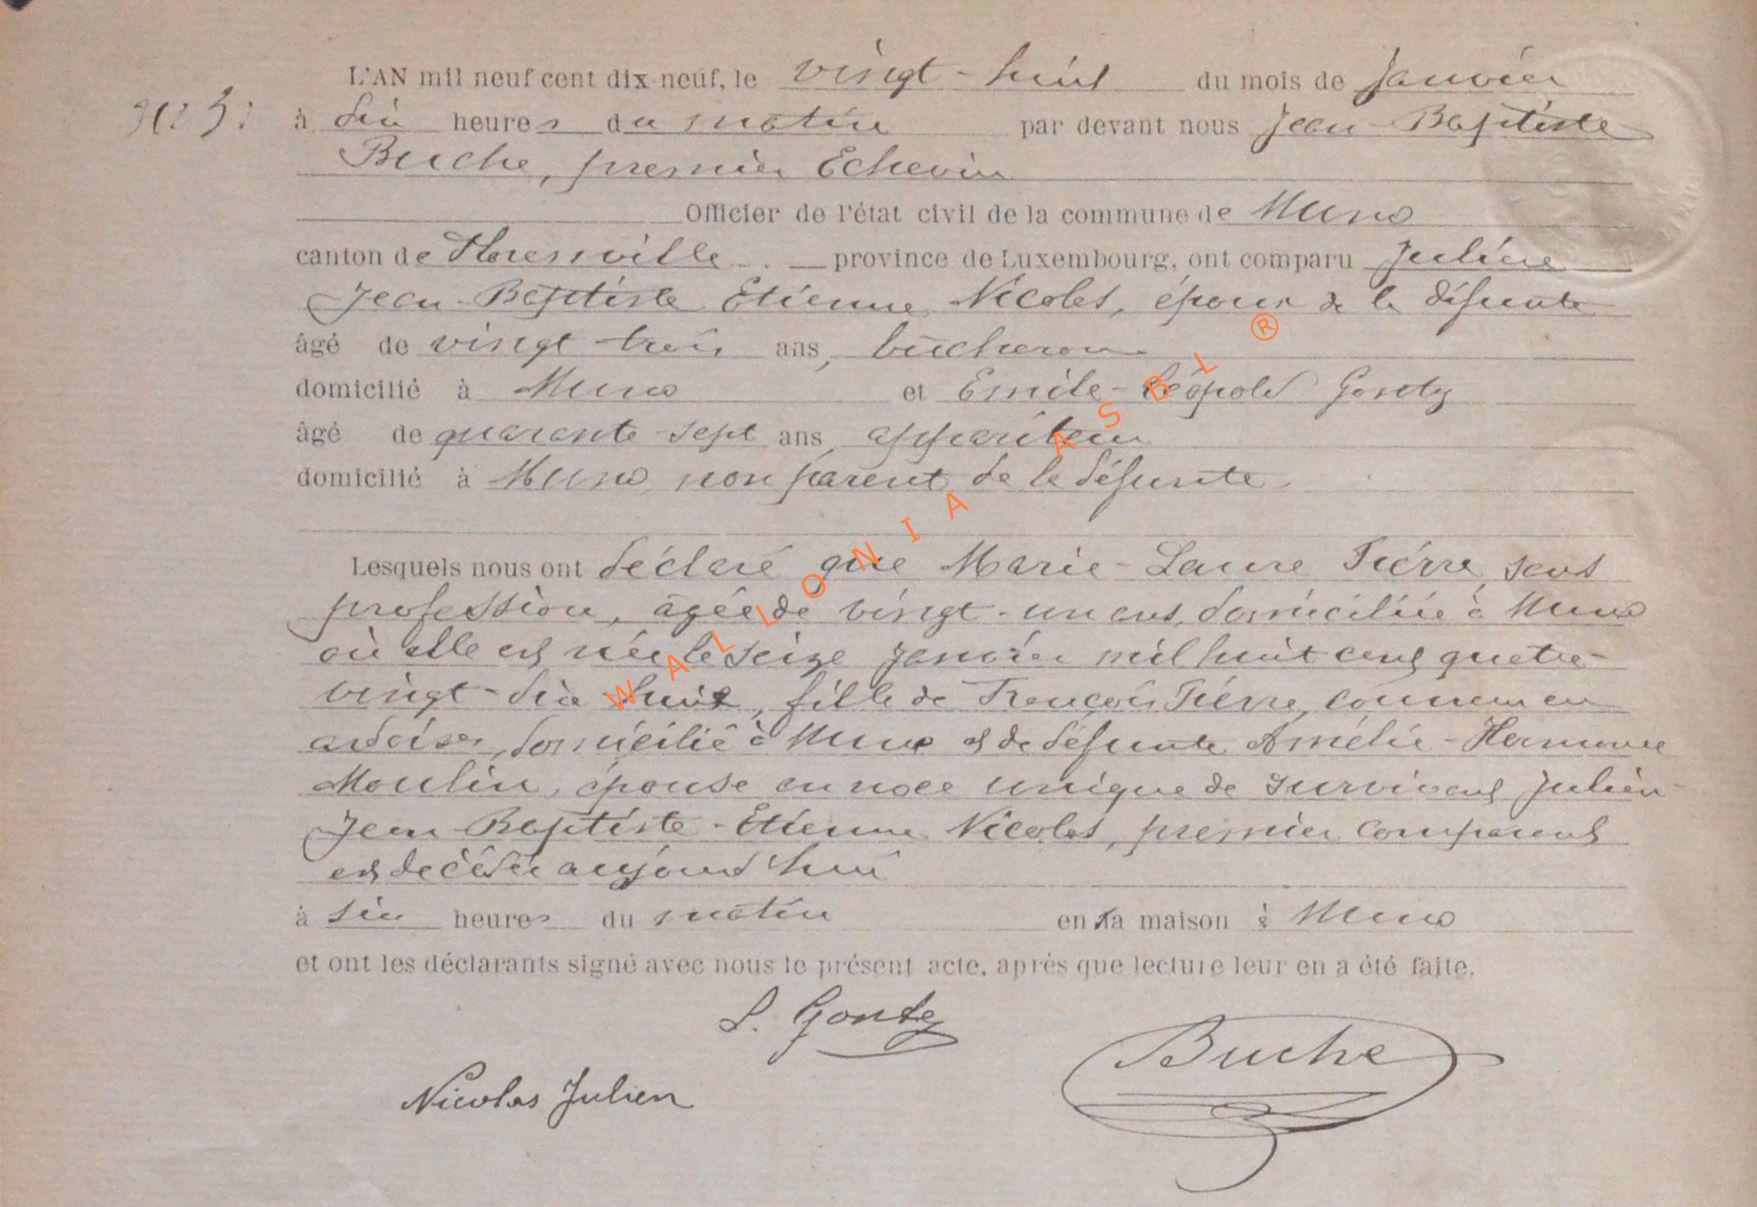 L'AN mil neuf cent dix-neuf, le vingt-huit du mois de Janvier
N° 3: à dix heures du matin par devant nous Jean-Baptiste
Buche, premier Echevin
Officier de l'état civil de la commune de Muno
canton de Florenville province de Luxembourg, ont comparu Julien
Jean-Baptiste Etienne Nicolas, époux de la défunte
âgé de vingt-trois ans, bûcheron
domicilié à Muno et Emile-Léopold Gontz
âgé de quarante-sept ans, appariteur
domicilié à Muno, non parent de la défunte
Lesquels nous ont déclaré que Marie-Laure Pierre, sans
profession, âgée de vingt-un ans, domiciliée à Muno
où elle est née le seize Janvier mil huit cent quatre-
vingt-dix huit, fille de François Pierre, couvreur en
ardoises, domicilié à Muno et de défunte Amélie-Hermance
Moulin, épouse en noce unique de survivant Julien
Jean-Baptiste-Etienne Nicolas, premier comparant
est décédée aujourd'hui
à six heures du matin en sa maison à Muno
et ont les déclarants signé avec nous le présent acte, après que lecture leur en a été faite.
L. Gontz
Buche
Nicolas Julien
WALLONIA ASBL ®